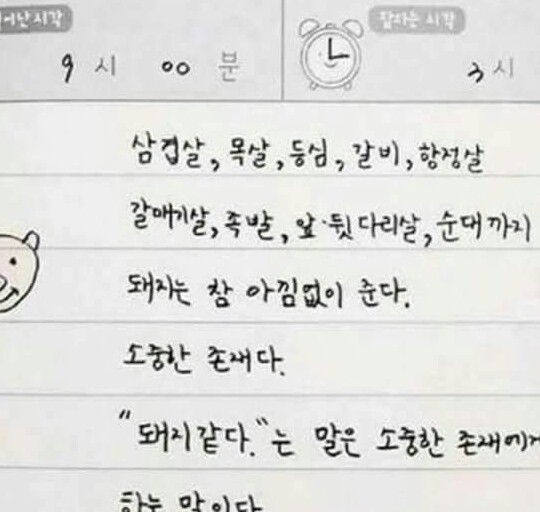 어난시각 잠자는 시각
9 시 00 분 3 시
삼겹살, 목살, 등심, 갈비, 항정살
갈매기살, 족발, 앞·뒷다리살, 순대까지
돼지는 참 아낌없이 준다.
소중한 존재다.
"돼지같다."는 말은 소중한 존재에게
하는 말이다